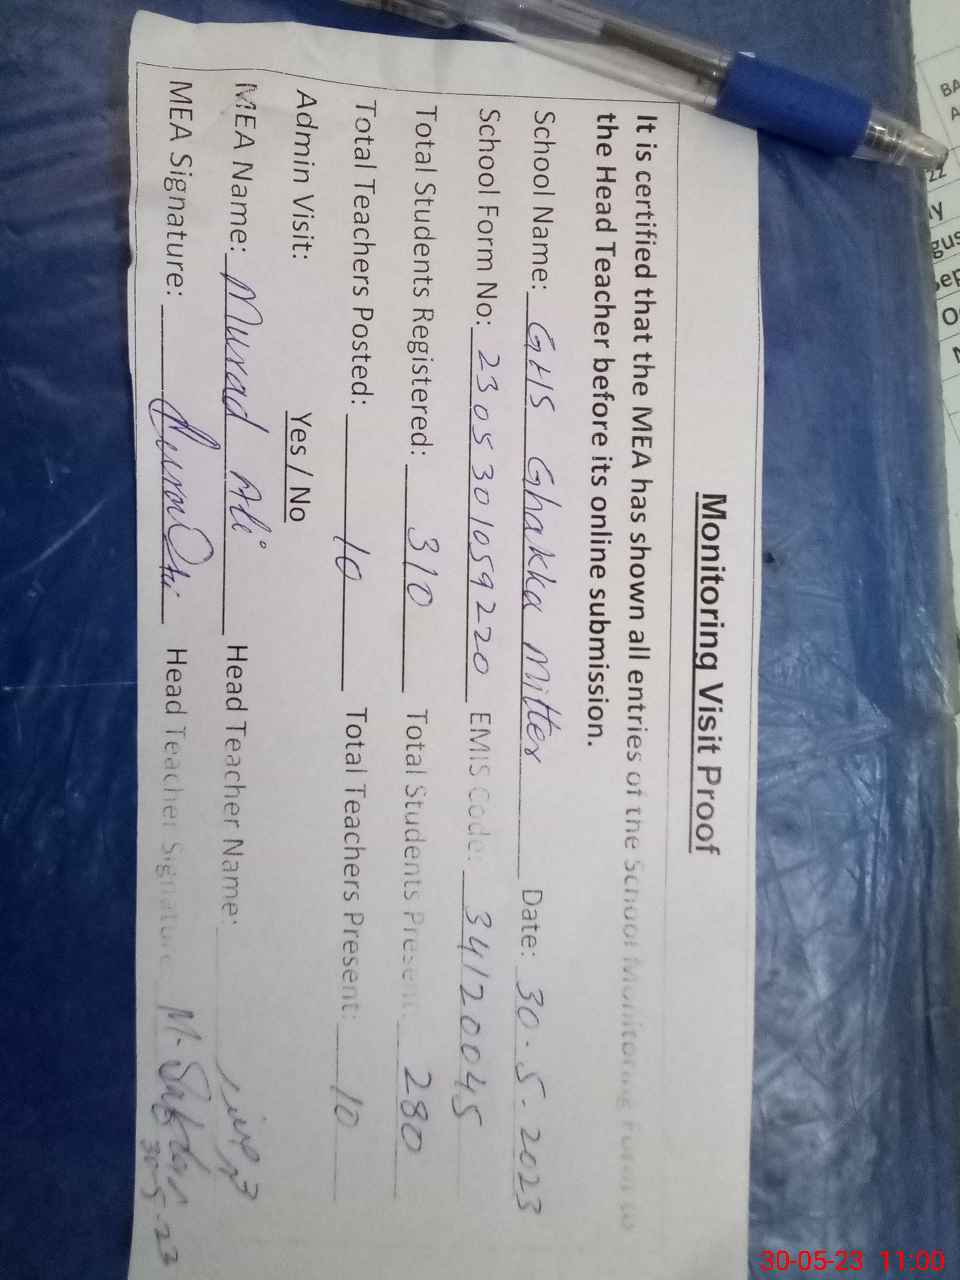 Monitoring Visit Proof
It is certified that the MEA has shown all entries of the School Monitoring Form to
the Head Teacher before its online submission.
School Name: GHS Ghakka Mitter Date: 30-5-2023
School Form No: 2305301059220 EMIS Code: 34120045
Total Students Registered: 310 Total Students Present: 280
Total Teachers Posted: 10 Total Teachers Present: 10
Admin Visit: Yes / No
MEA Name: Murad Ali Head Teacher Name:
MEA Signature: Murad Ali Head Teacher Signature M. Safdar
30-5-23
30-05-23 11:00